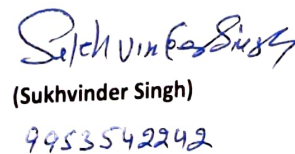 Sukhvinder Singh
(Sukhvinder Singh)
9953542242